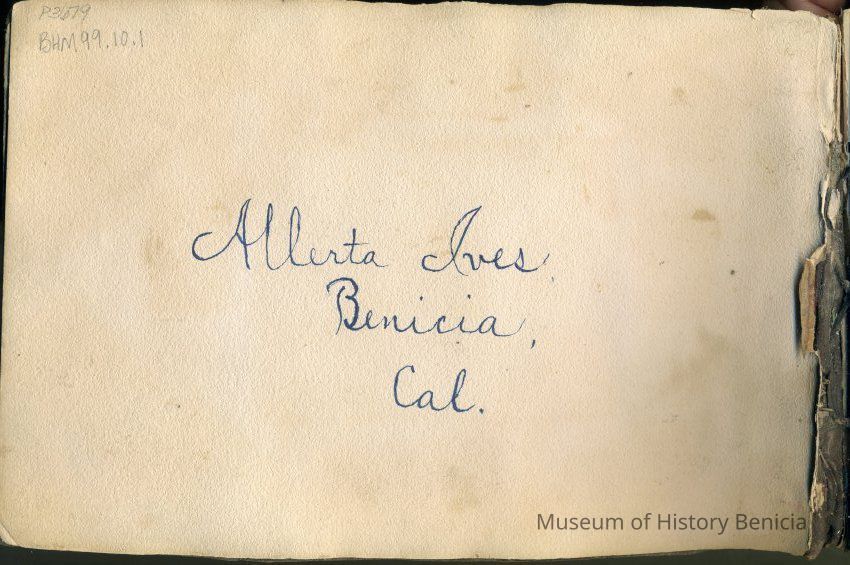 P3579
BHM 99.10.1
Allerta Ives.
Benicia,
Cal.
Museum of History Benicia